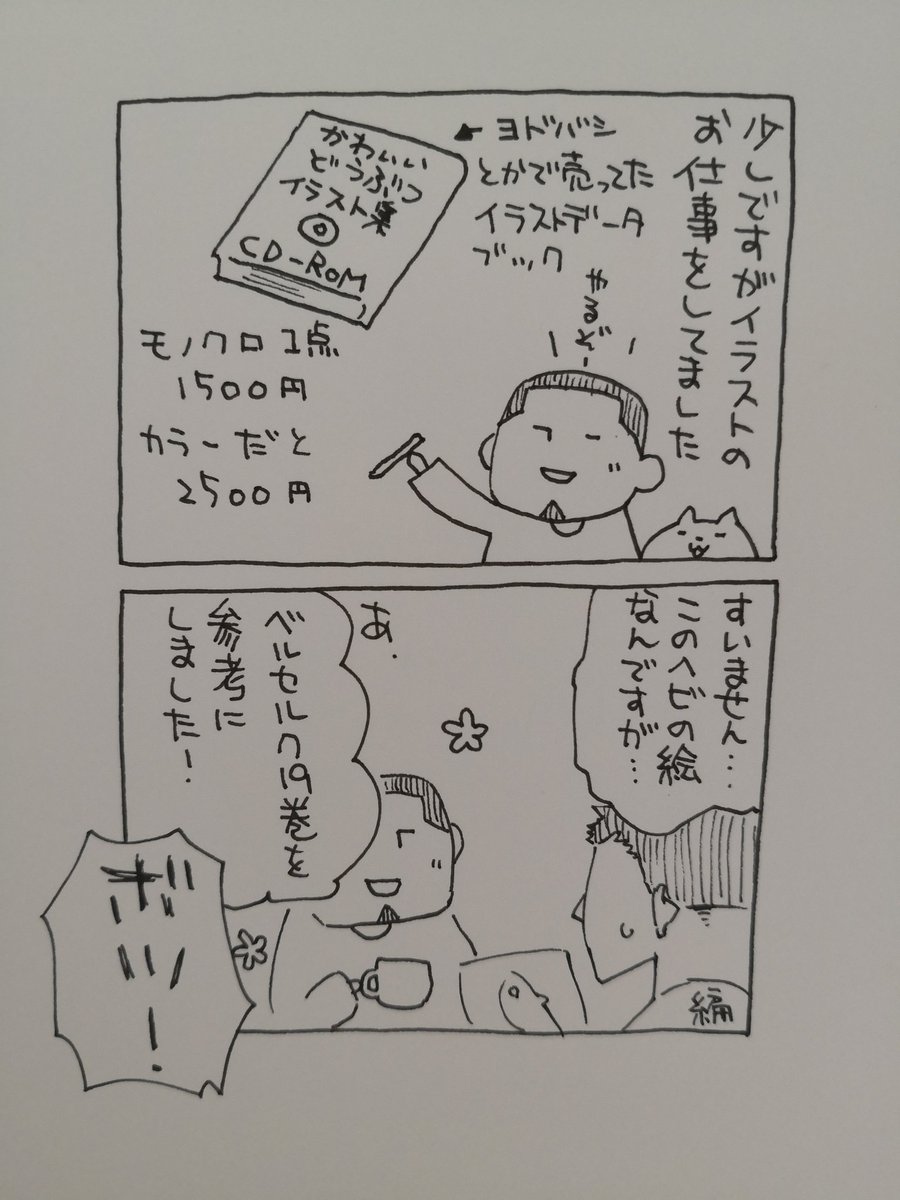 少しですがイラストの
お仕事をしてました
ヨドバシ
とかで売ってた
イラストデータ
ブック
かわいい
どうぶつ
イラスト集
CD-ROM
やるぞー
モノクロ1点
1500円
カラーだと
2500円
すいません…
このヘビの絵
なんですが…
編
あ.
ベルセルク19巻を
参考に
しました!
ボツ!